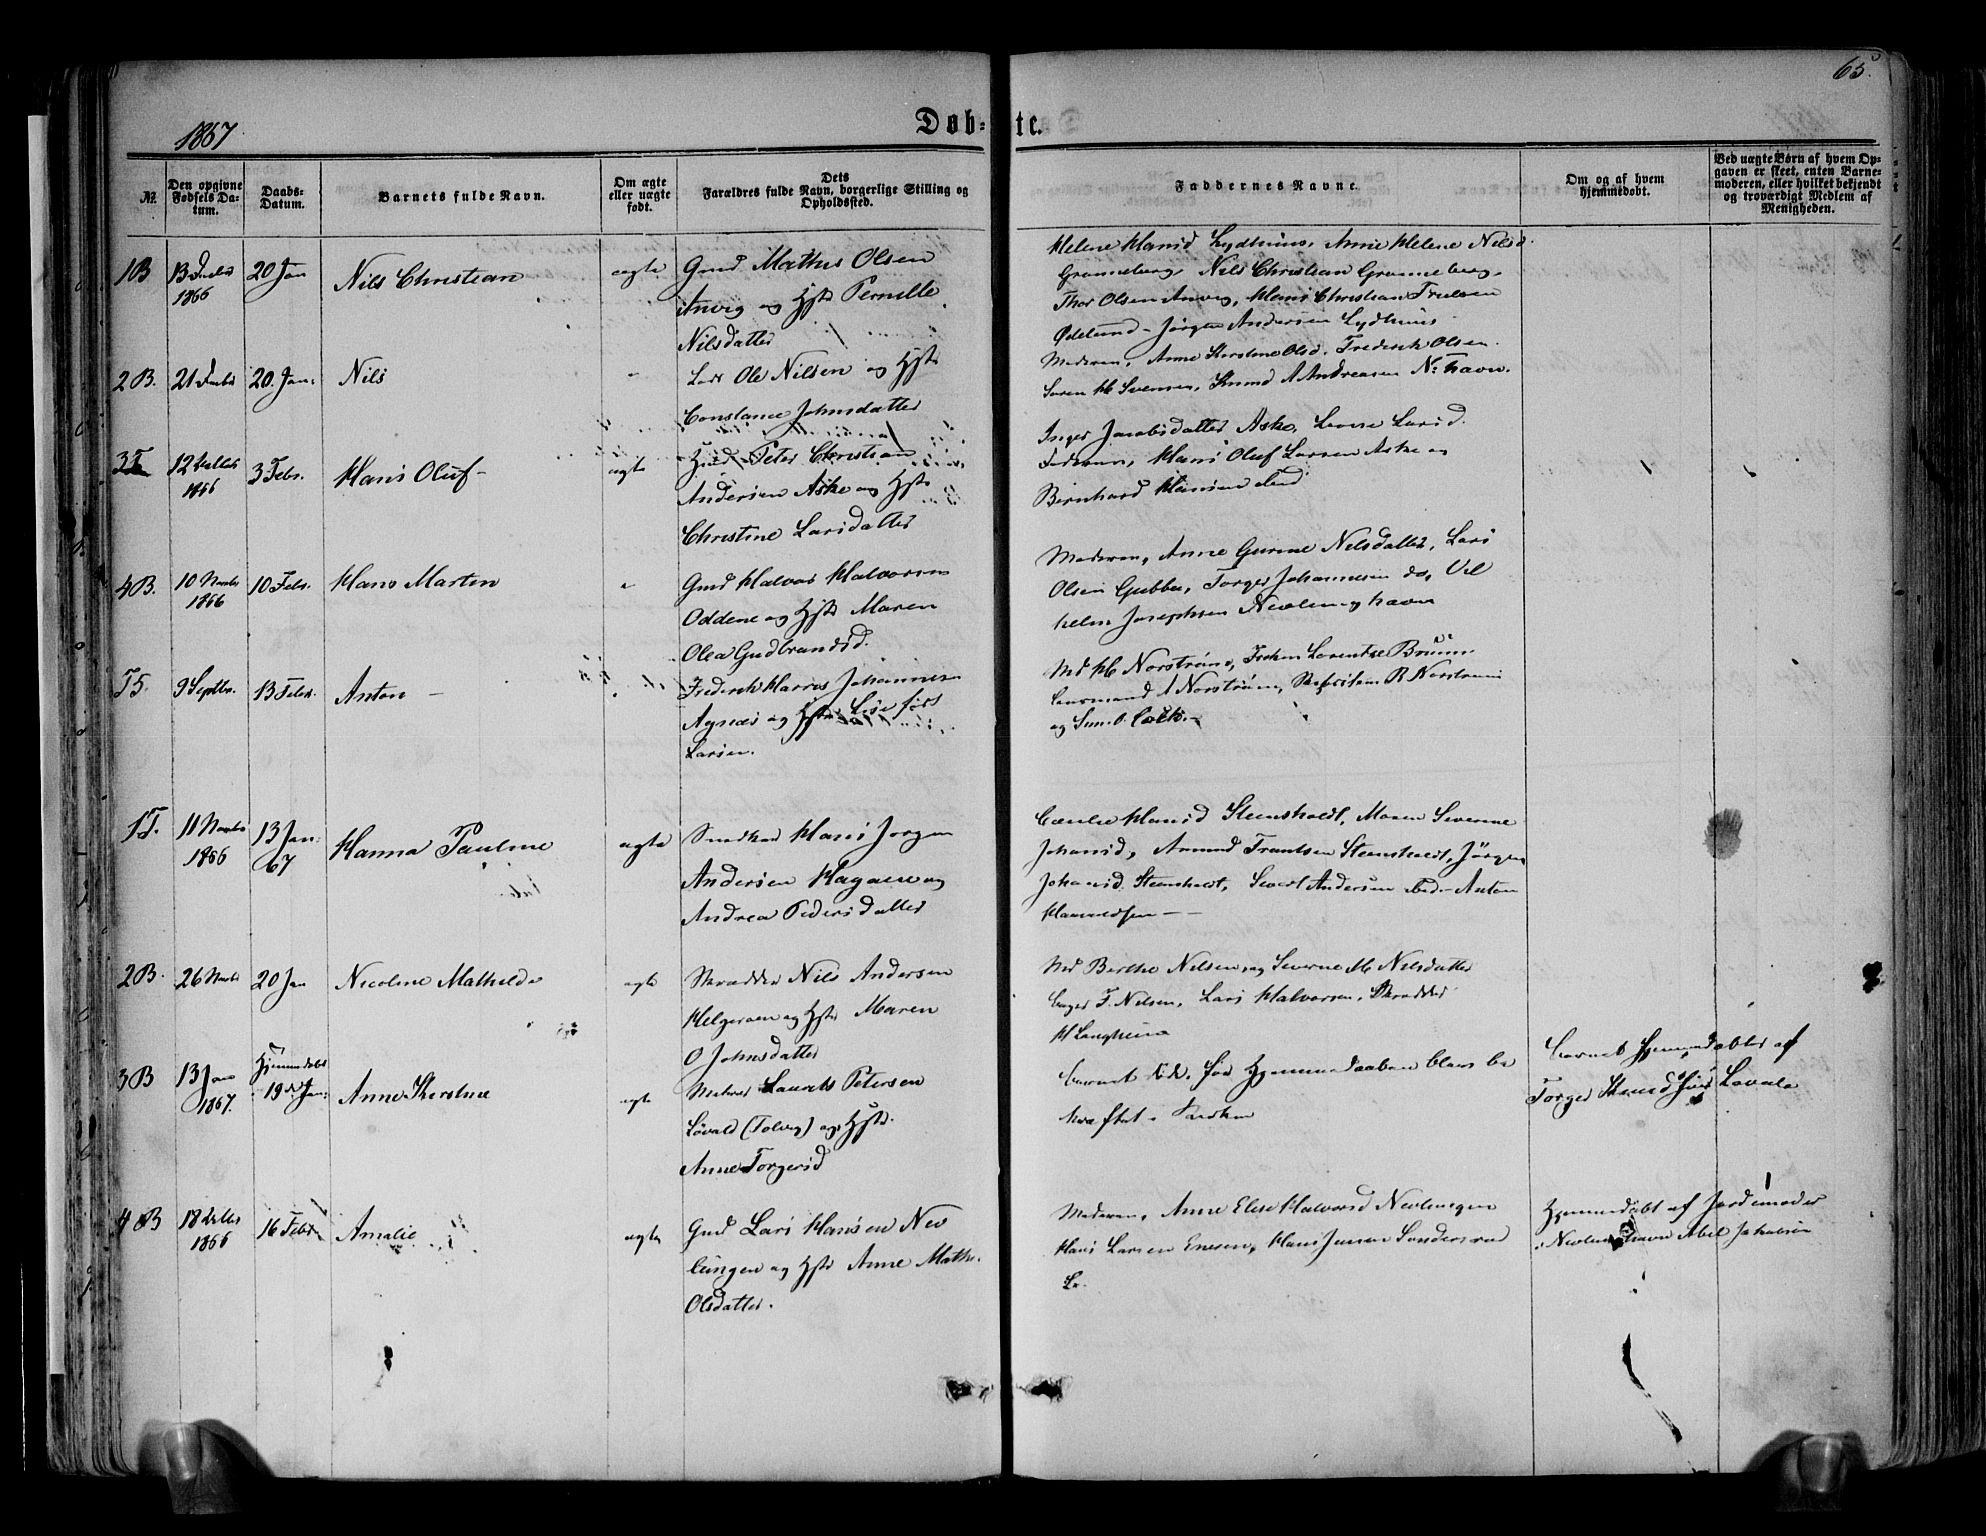 65.
1867
Døb-te.
№.
Den opgivne Fødsels Da-tum.
Daabs-Datum.
Barnets fulde Navn.
Om ægte eller uægte født.
Dets Forældres fulde Navn, borgerlige Stilling og Opholdssted.
Faddernes Navne.
Om og af hvem hjemmedøbt.
Ved uægte Børn af hvem Op-
gaven er skeet, enten Barne-
moderen, eller hvilket bekjendt
og troværdigt Medlem af
Menigheden.
1B
13 Decbr
1866
20 Jan
Nils Christian
ægte
Gmd Mathis Olsen
Anvig og Hstr Pernille
Nilsdatter
Helene Hansd Lydhuus, Anne Helene Nilsd.
Grønneberg, Nils Christian Grønneberg,
Thor Olsen Anvig, Hans Christian
Ødelund - Jørgen Andersen Lydhuus
2B.
21 Decbr
20. Jan:
Nils
"
Lods Ole Nilsen og Hstr
Constance Johnsdatter
Moderen, Anne Kerstine Olsd. Frederik Olsen
Søren H Svensen, A Andreasen N: havn.
3T
12 Octbr
1866
3 Febr.
Hans Oluf -
ægte
Peter Christian
Andersen Aske og Hstr
Christine Larsdatter
Inger Jacobsdatter Aske, Larsd.
Hans Oluf Larsen Aske og
Bernhard Hansen
4B.
10 Novbr
1866
10 Febr.
Hans Martin
"
Gmd Halvor Halvorsen
Oddene og Hstr Maren
Olea Gudbrandsd.
Moderen, Anne Gurine Nilsdatter, Lars
Olsen Gubba, Torger Johannesen do, Vil
helm Josephsen Nevlunghavn
T5.
9 Septbr.
13 Febr.
Anton -
Frederik Johannes
Agnæs og Hstr Lise født
Larsen.
Md H Norstrøm, Frøken Lorentze Bruun
A Norstrøm, R Norstrøm
og
1T.
11 Novbr
1866
13 Jan:
67
Hanna Pauline
ægte
Snedker Hans Jørgen
Andersen Hagane og
Andrea Pedersdatter
Hansd Steensholdt, Maren Severine
Johansd, Amund Frantsen Steensholdt, Jørgen
Johansd. Steensholdt, Severt Andersen Anton
2B.
26 Novbr
20 Jan
Nicoline Mathilde
ægte
Skrædder Nils Andersen
Helgeroen og Hstr Maren
O Johnsdatter
Md Berthe Nilsen og Severine M Nilsdatter
F. Nilsen, Lars Halvorsen, Skrædder
H Langhuus
3B
13 Jan
1867.
Hjemmedøbt
19de Jan:
Anne Kerstine
ægte
Laurits Petersen
Løvald (Tolvig) og Hstr.
Anne Torgersd
Barnet før Hjemmedaaben blev be
kræftet i Kirken
Barnet hjemmedøbt af
Torger Løvald
4B
18 Octbr
1866
16 Febr
Amalie
ægte
Gmd Lars Hansen Nev
lungen og Hstr Anne Math.
Olsdatter.
Moderen, Anne Elise Halvorsd Nevlungen
Hans Larsen Enesen, Hans Jensen
Hjemmedøbt af Jordemoder
i Nevlunghavn Abel Jakobsen